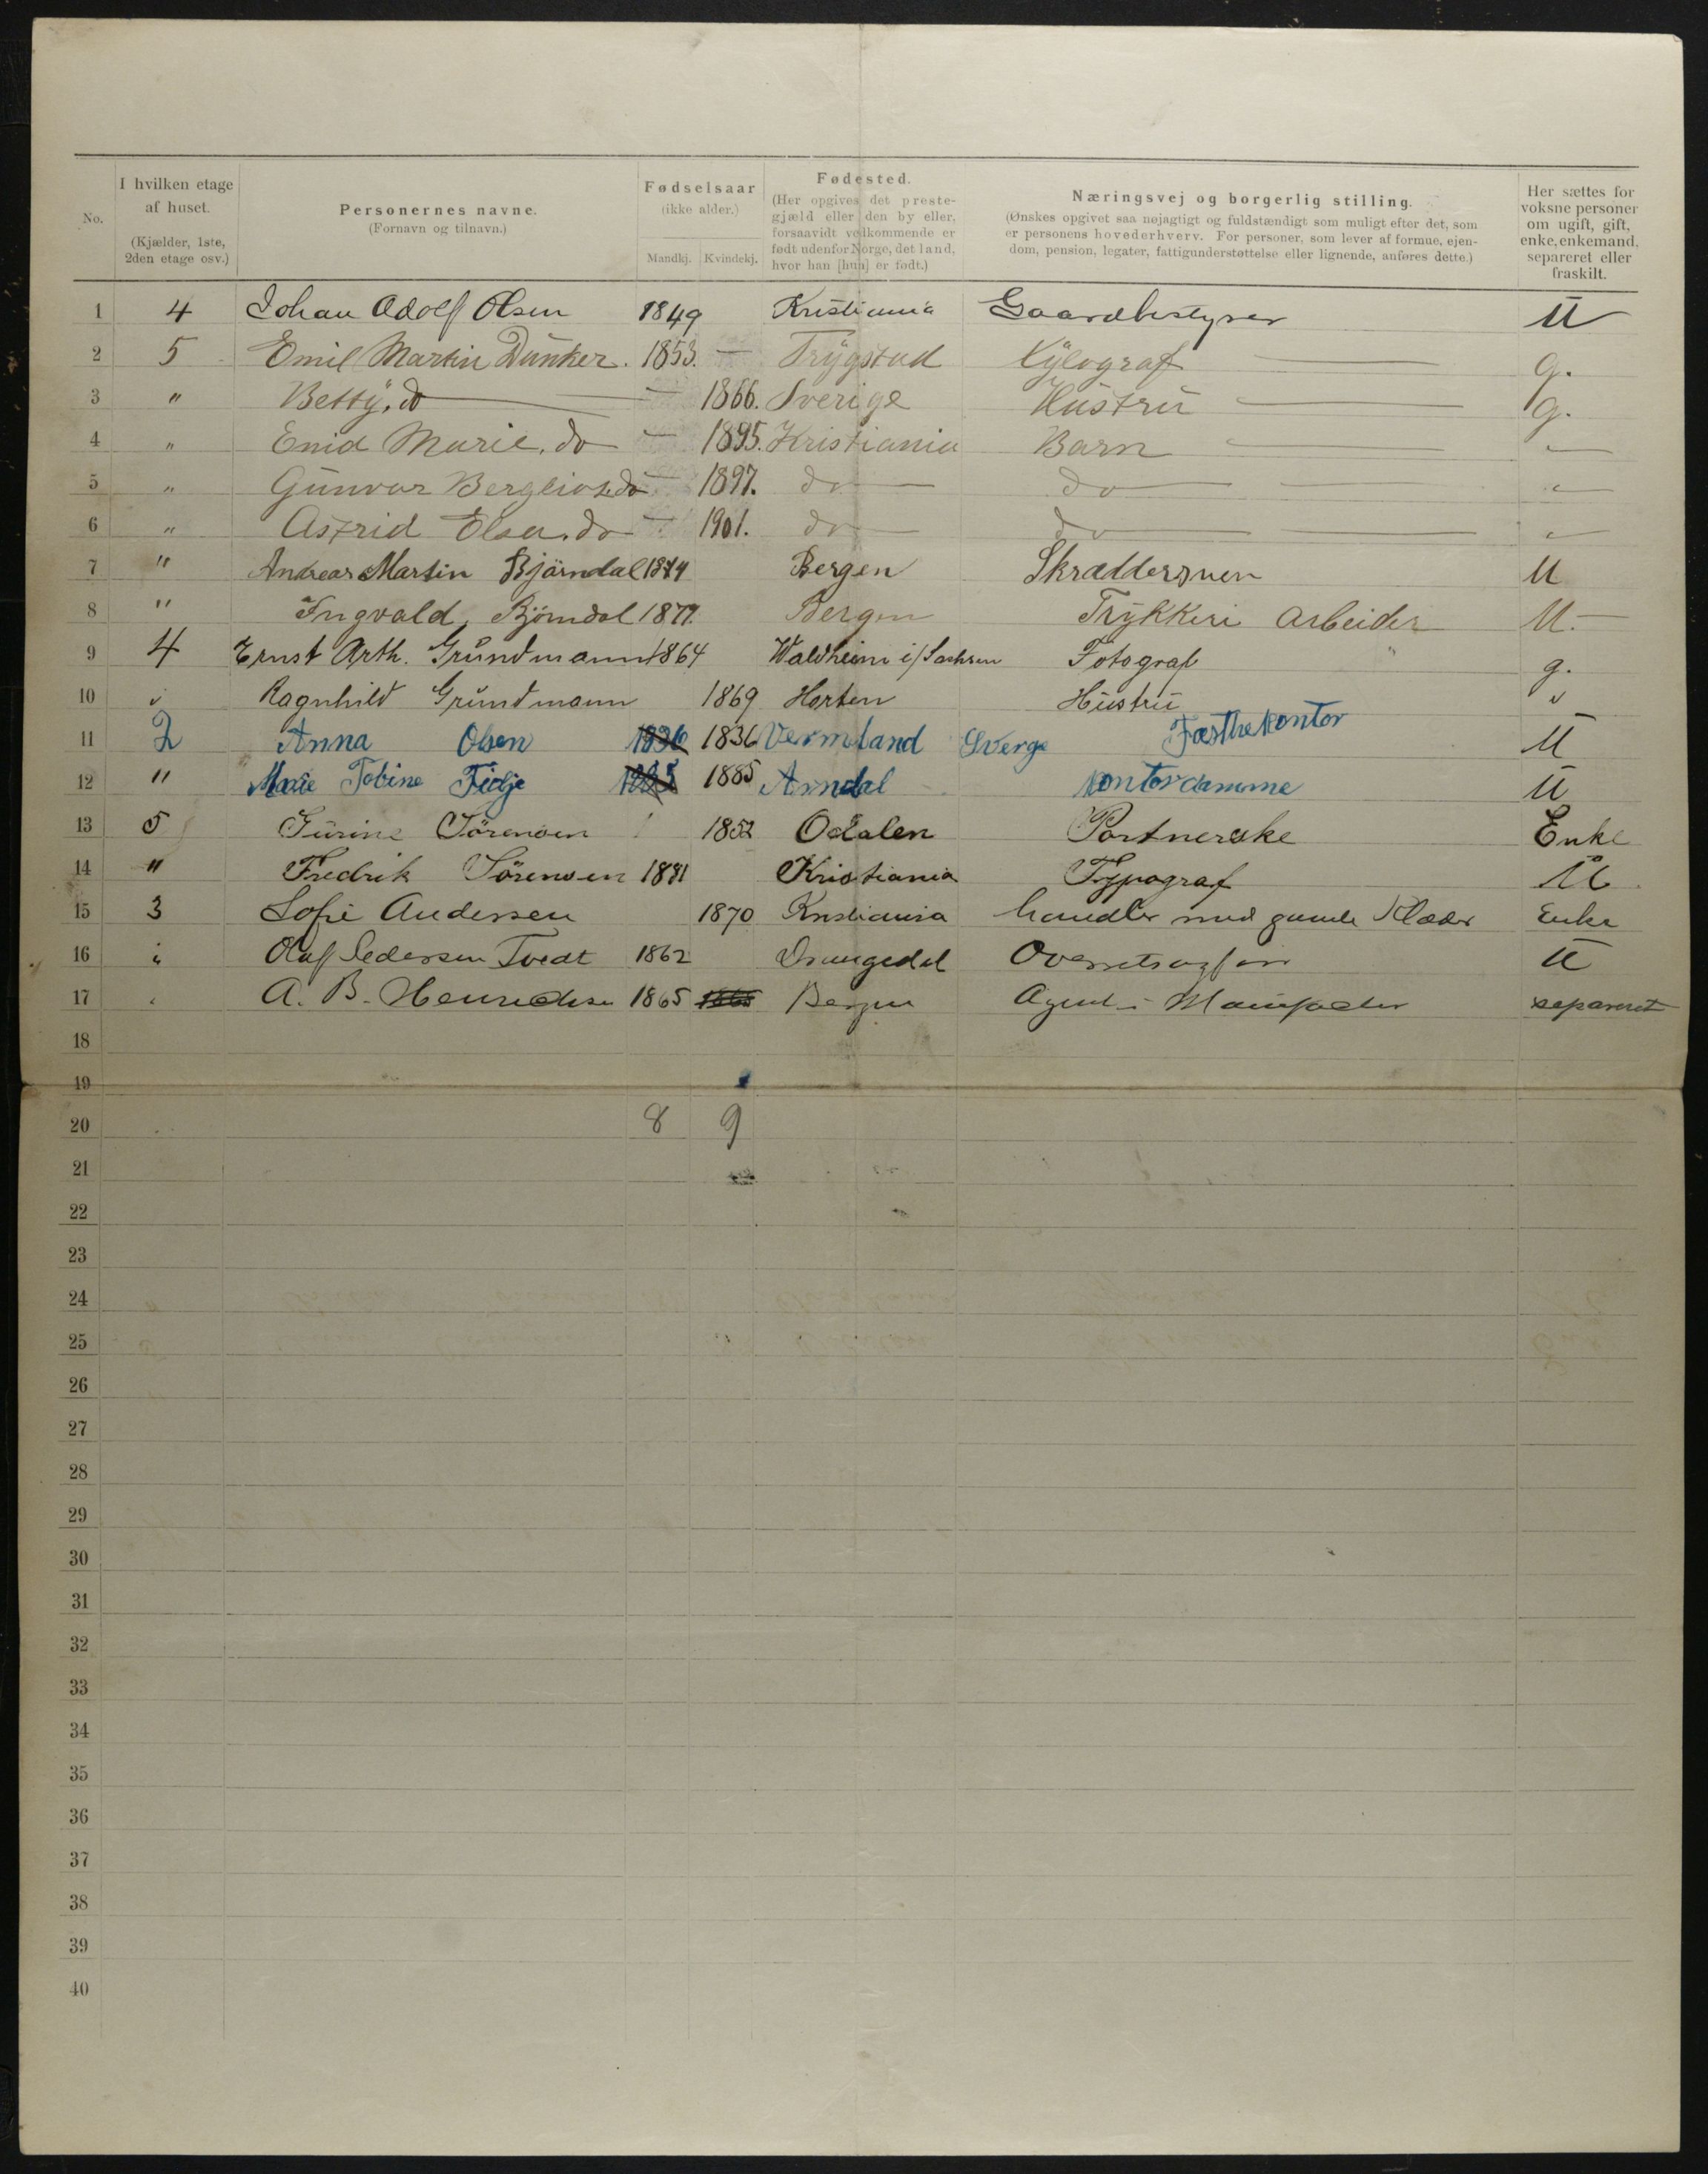 No. | I hvilken etage af huset. (Kjælder, 1ste, 2den etage osv.) | Personernes navne. (Fornavn og tilnavn.) | Fødselsaar (ikke alder.) Mandkj. Kvindekj. | Fødested. (Her opgives det prestegjæld eller den by eller, forsaavidt vedkommende er født udenfor Norge, det land, hvor han [hun] er født.) | Næringsvej og borgerlig stilling. (Ønskes opgivet saa nøjagtigt og fuldstændigt som muligt efter det, som er personens hovederhverv. For personer, som lever af formue, ejendom, pension, legater, fattigunderstøttelse eller lignende, anføres dette.) | Her sættes for voksne personer om ugift, gift, enke, enkemand, separeret eller fraskilt.
1 4 Johan Adolf Olsen 1849 Kristiania Gaardbestyrer U
2 5 Emil Martin Dunker. 1853. — Trygstad Xylograf — g.
3 " Betty, do — 1866. Sverige Hustru — g.
4 " Enid Marie, do — 1895. Kristiania Barn — —
5 " Gunvor Bergliot, do — 1897. do — do — —
6 " Astrid Elsa, do — 1901. do — do — —
7 " Andreas Martin Bjørndal 1874 Bergen Skræddersven U
8 " Ingvald Bjørndal 1879. Bergen Trykkeri Arbeider U. —
9 4 Ernst Arth. Grundmann 1864 Waldheim i/Sachsen Fotograf g.
10 " Ragnhild Grundmann 1869 Horten Hustru "
11 2 Anna Olsen 1836 1836 Vermland Sverge Fæsthekontor U
12 " Marie Tobine Fidje 1885 1885 Arndal kontordamme U
13 5 Gurine Sörensen 1852 Odalen Portnerske Enke
14 " Fredrik Sörensen 1881 Kristiania Typograf U
15 3 Sofie Andersen 1870 Kristiania handler med gamle Klæder Enke
16 " Olaf Pedersen Tvedt 1862 Drangedal Overretssagfører U
17 " A. B. Henrichsen 1865 1865 Bergen Agent i Manufactur separeret
18
19
20 8 9
21
22
23
24
25
26
27
28
29
30
31
32
33
34
35
36
37
38
39
40